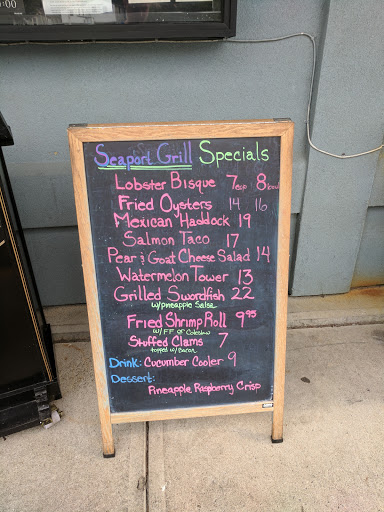 :00
Seaport Grill Specials
Lobster Bisque 7cup 8bowl
Fried Oysters 14 16
Mexican Haddock 19
Salmon Taco 17
Pear & Goat Cheese Salad 14
Watermelon Tower 13
Grilled Swordfish 22
w/pineapple Salsa
Fried Shrimp Roll 9.95
w/FF or Coleslaw
Stuffed Clams 7
topped w/Bacon
Drink: Cucumber Cooler 9
Dessert:
Pineapple Raspberry Crisp